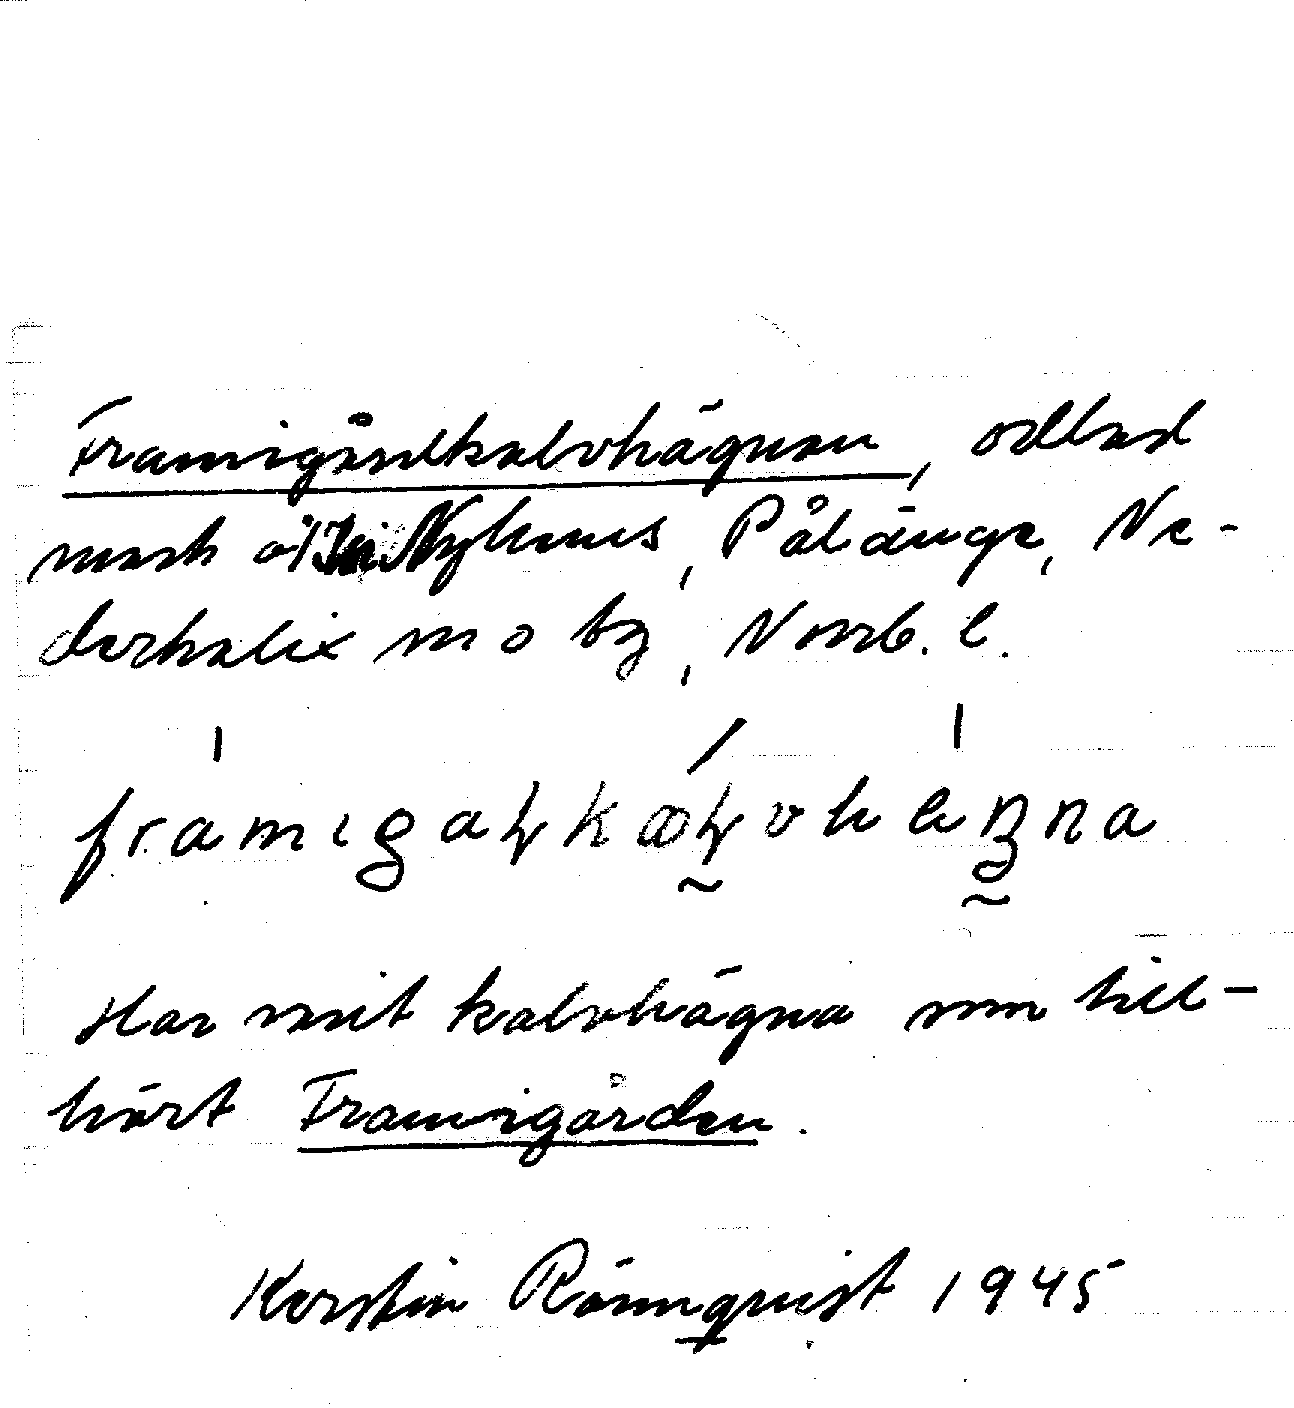 Framigårdkalvhägnan, odlad
mark å Nyhems, Pålänge, Ne-
derkalix sn o tg, Norrb. l.
framigaꞎkæꞎvhäŋna
Har varit kalvhägna som till-
hört Framigården.
Kerstin Rönnqvist 1945